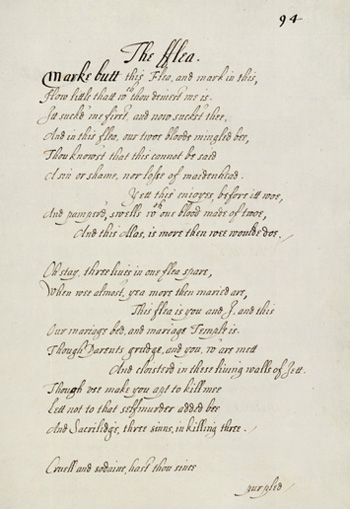 94
The fflea.
Marke butt this Flea, and mark in this,
How little thatt wch thou deniest me is.
Itt suckt me first, and now sucks thee,
And in this flea, our twoe bloods mingled bee,
Thou knowst that this cannot be said
A sin or shame, nor losse of maidenhead.
Yett this enioyes, before itt woe,
And pamper'd, swells wth one blood made of twoe,
And this Alas, is more then wee would doe.
Oh stay, three lives in one flea spare,
When wee almost, yea more then maried are,
This flea is you and I, and this
Our mariage bed, and mariage Temple is.
Though Parents grudge, and you, w'are mett
And cloistered in these living walls of Jett.
Though vse make you apt to kill mee
Lett not to that selfmurder added bee
And Sacriledge, three sinns, in killing three.
Cruell and sodaine, hast thou since
purpled